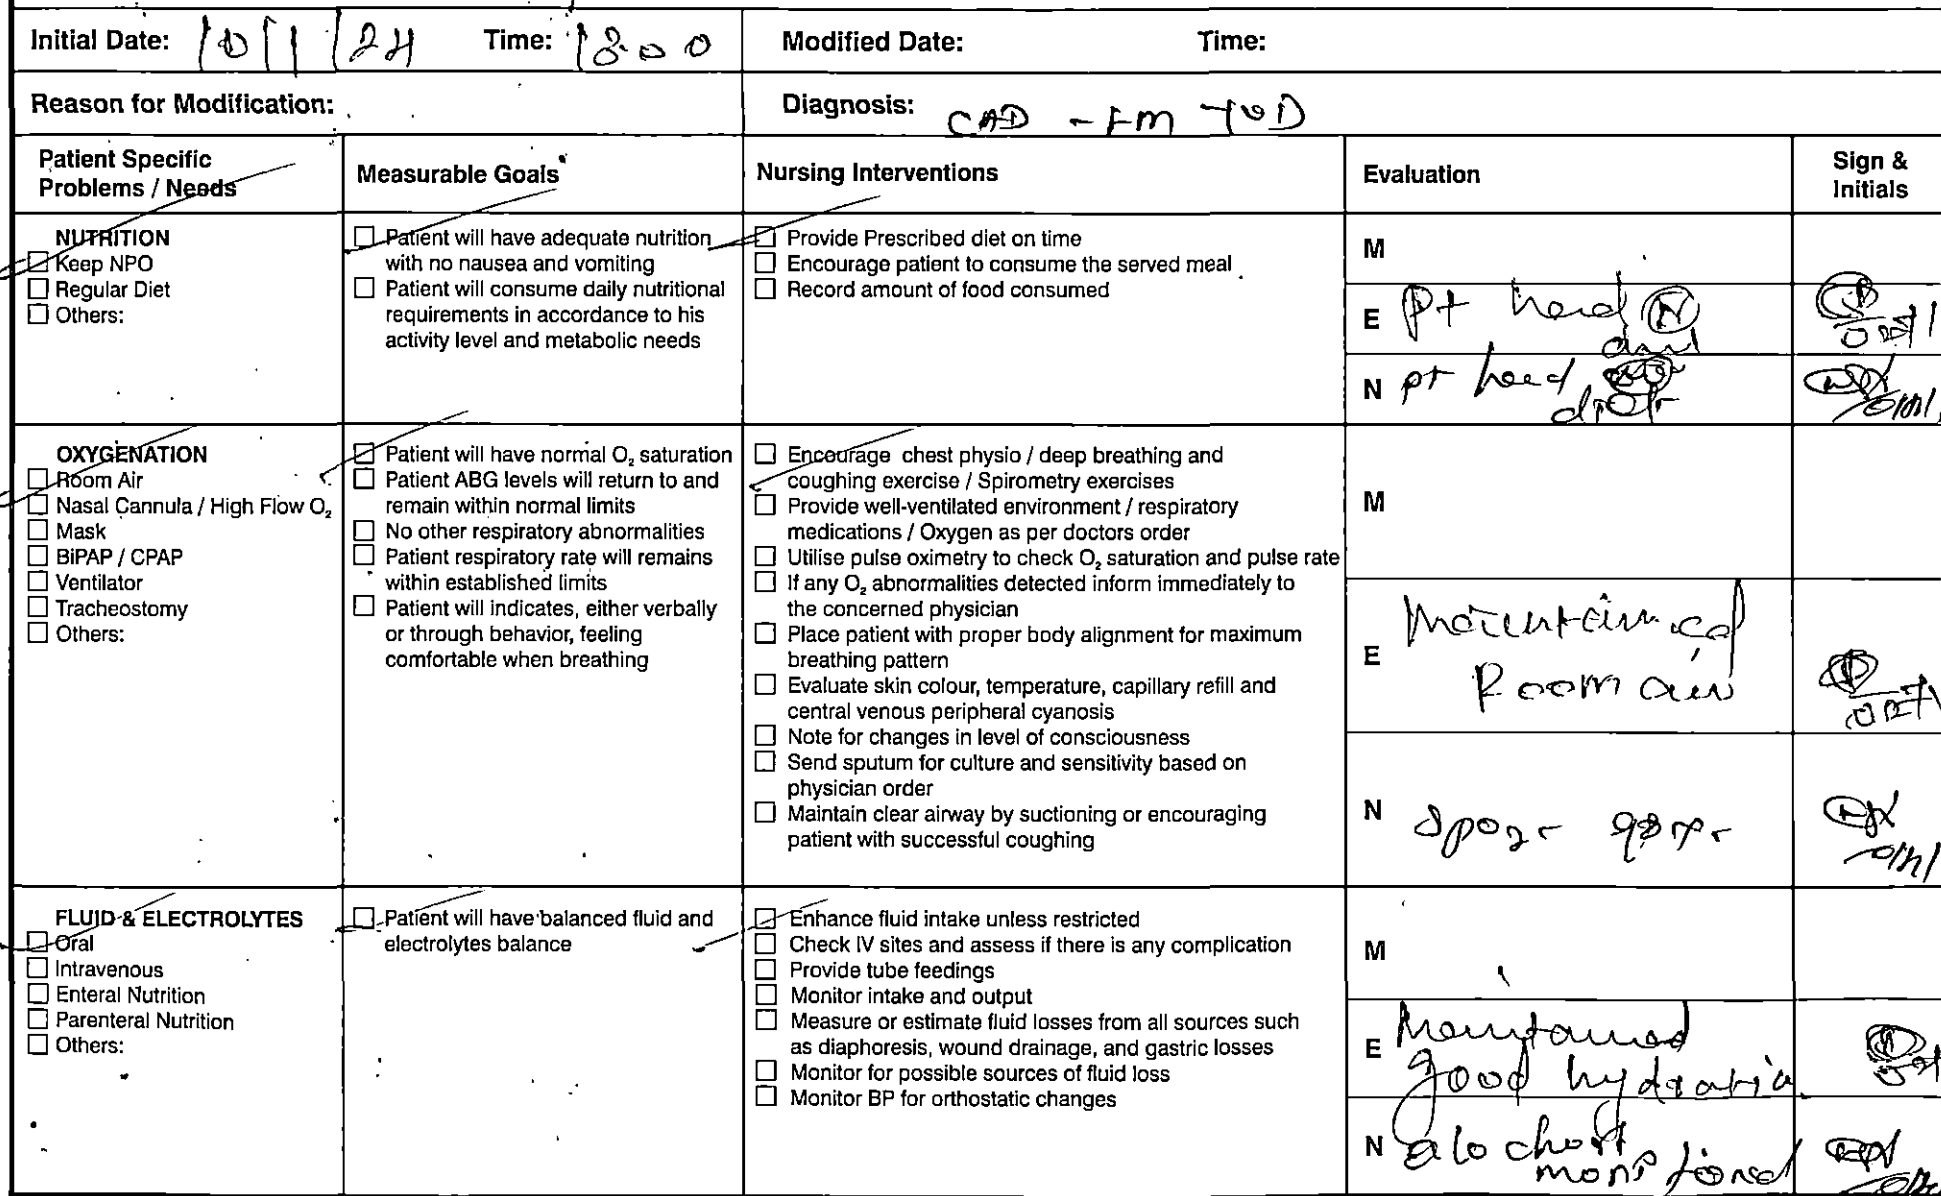 Initial Date: 10/1/24 Time: 1800 Modified Date: Time:
Reason for Modification: Diagnosis: CAD -
Patient Specific
Problems / Needs
Measurable Goals
Nursing Interventions
Evaluation
Sign &
Initials
NUTRITION
Keep NPO
Regular Diet
Others:
Patient will have adequate nutrition
with no nausea and vomiting
Patient will consume daily nutritional
requirements in accordance to his
activity level and metabolic needs
Provide Prescribed diet on time
Encourage patient to consume the served meal
Record amount of food consumed
M
E Pt had N
N pt had
OXYGENATION
Room Air
Nasal Cannula / High Flow O₂
Mask
BiPAP / CPAP
Ventilator
Tracheostomy
Others:
Patient will have normal O₂ saturation
Patient ABG levels will return to and
remain within normal limits
No other respiratory abnormalities
Patient respiratory rate will remains
within established limits
Patient will indicates, either verbally
or through behavior, feeling
comfortable when breathing
Encourage chest physio / deep breathing and
coughing exercise / Spirometry exercises
Provide well-ventilated environment / respiratory
medications / Oxygen as per doctors order
Utilise pulse oximetry to check O₂ saturation and pulse rate
If any O₂ abnormalities detected inform immediately to
the concerned physician
Place patient with proper body alignment for maximum
breathing pattern
Evaluate skin colour, temperature, capillary refill and
central venous peripheral cyanosis
Note for changes in level of consciousness
Send sputum for culture and sensitivity based on
physician order
Maintain clear airway by suctioning or encouraging
patient with successful coughing
M
E Maintained
Room air
N
FLUID & ELECTROLYTES
Oral
Intravenous
Enteral Nutrition
Parenteral Nutrition
Others:
Patient will have balanced fluid and
electrolytes balance
Enhance fluid intake unless restricted
Check IV sites and assess if there is any complication
Provide tube feedings
Monitor intake and output
Measure or estimate fluid losses from all sources such
as diaphoresis, wound drainage, and gastric losses
Monitor for possible sources of fluid loss
Monitor BP for orthostatic changes
M
E Maintained
good hydration
N chart